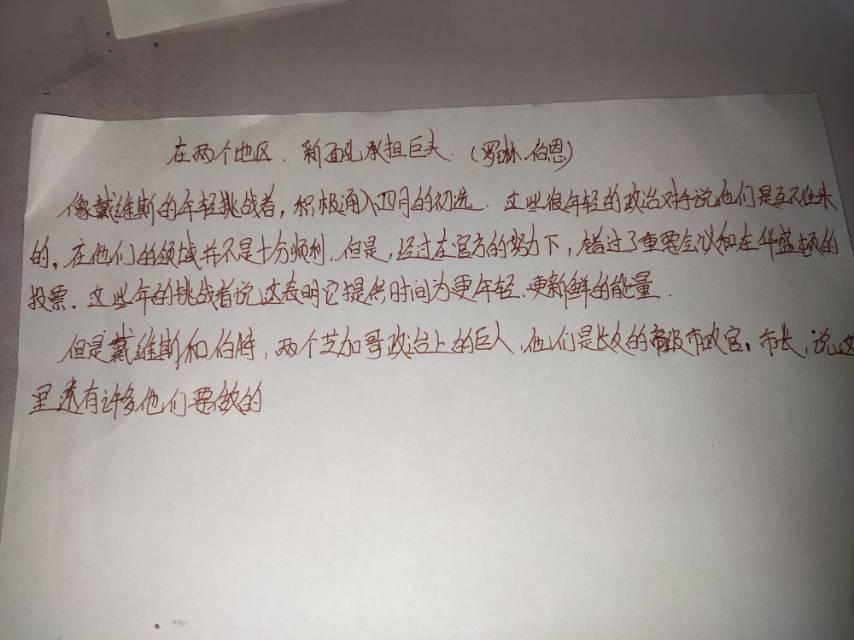 在两个地区．新面孔承担巨头．(罗琳．伯恩)
像戴维斯的年轻挑战者，积极涌入四月的初选．这些很年轻的政治对手说他们是互不往来
的，在他们的领域并不是十分顺利，但是，经过在官方的努力下，错过了重要会议和在华盛顿的
投票．这些年轻的挑战者说这表明它提供时间为更年轻、更新鲜的能量．
但是戴维斯和伯时，两个芝加哥政治上的巨人，他们是长久的市政官，市长，说这
里还有许多他们要做的